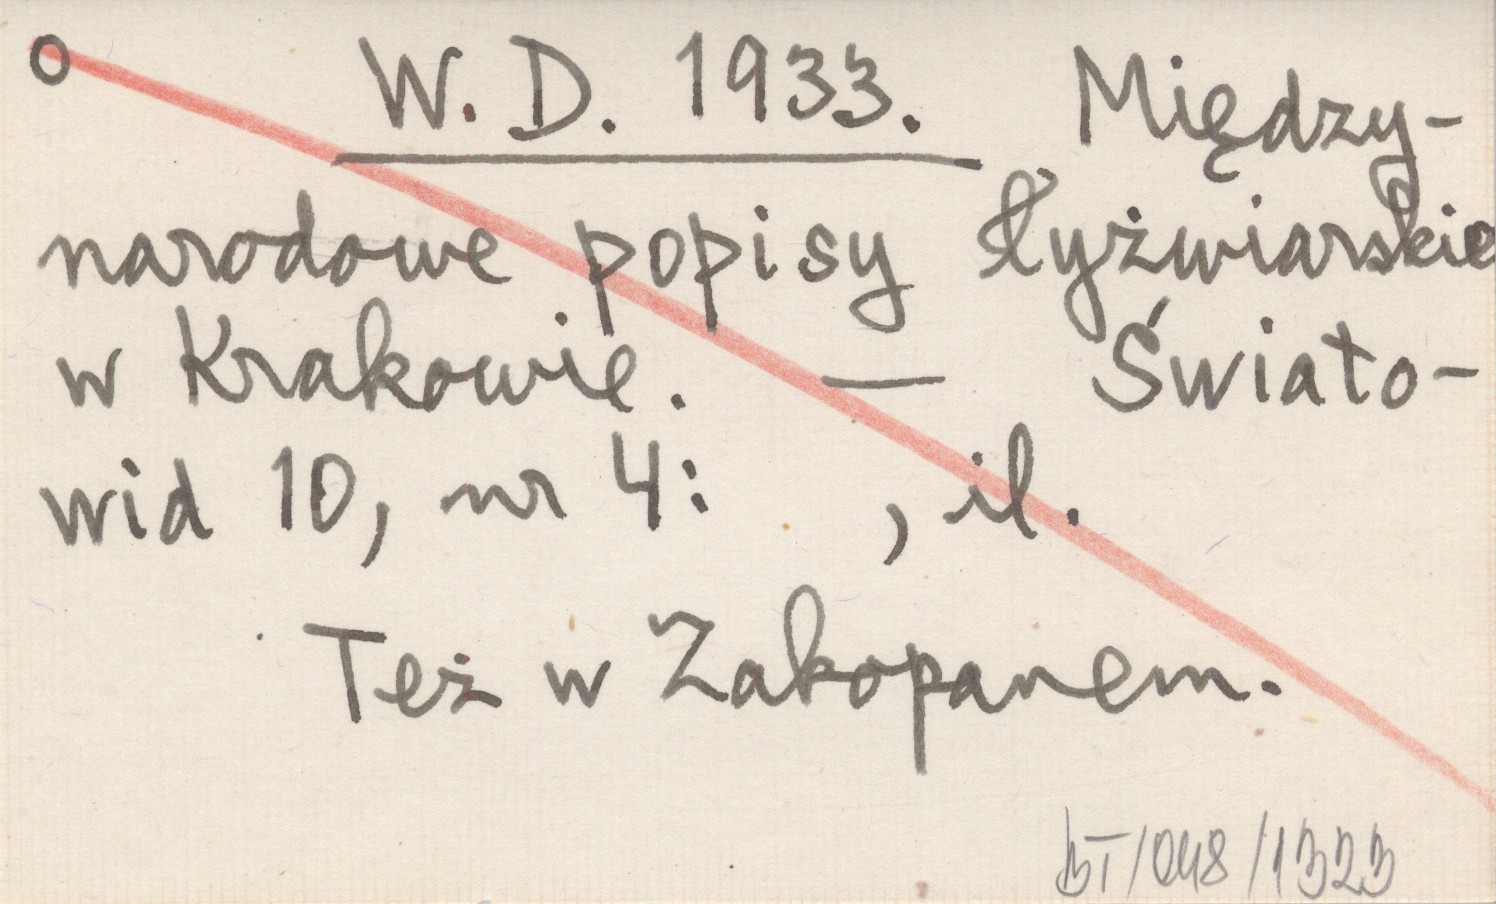 o W. D. 1933. Między-
narodowe popisy łyżwiarskie
w Krakowie. — Świato-
wid 10, nr 4: , il.
Też w Zakopanem.
BT/048/1323